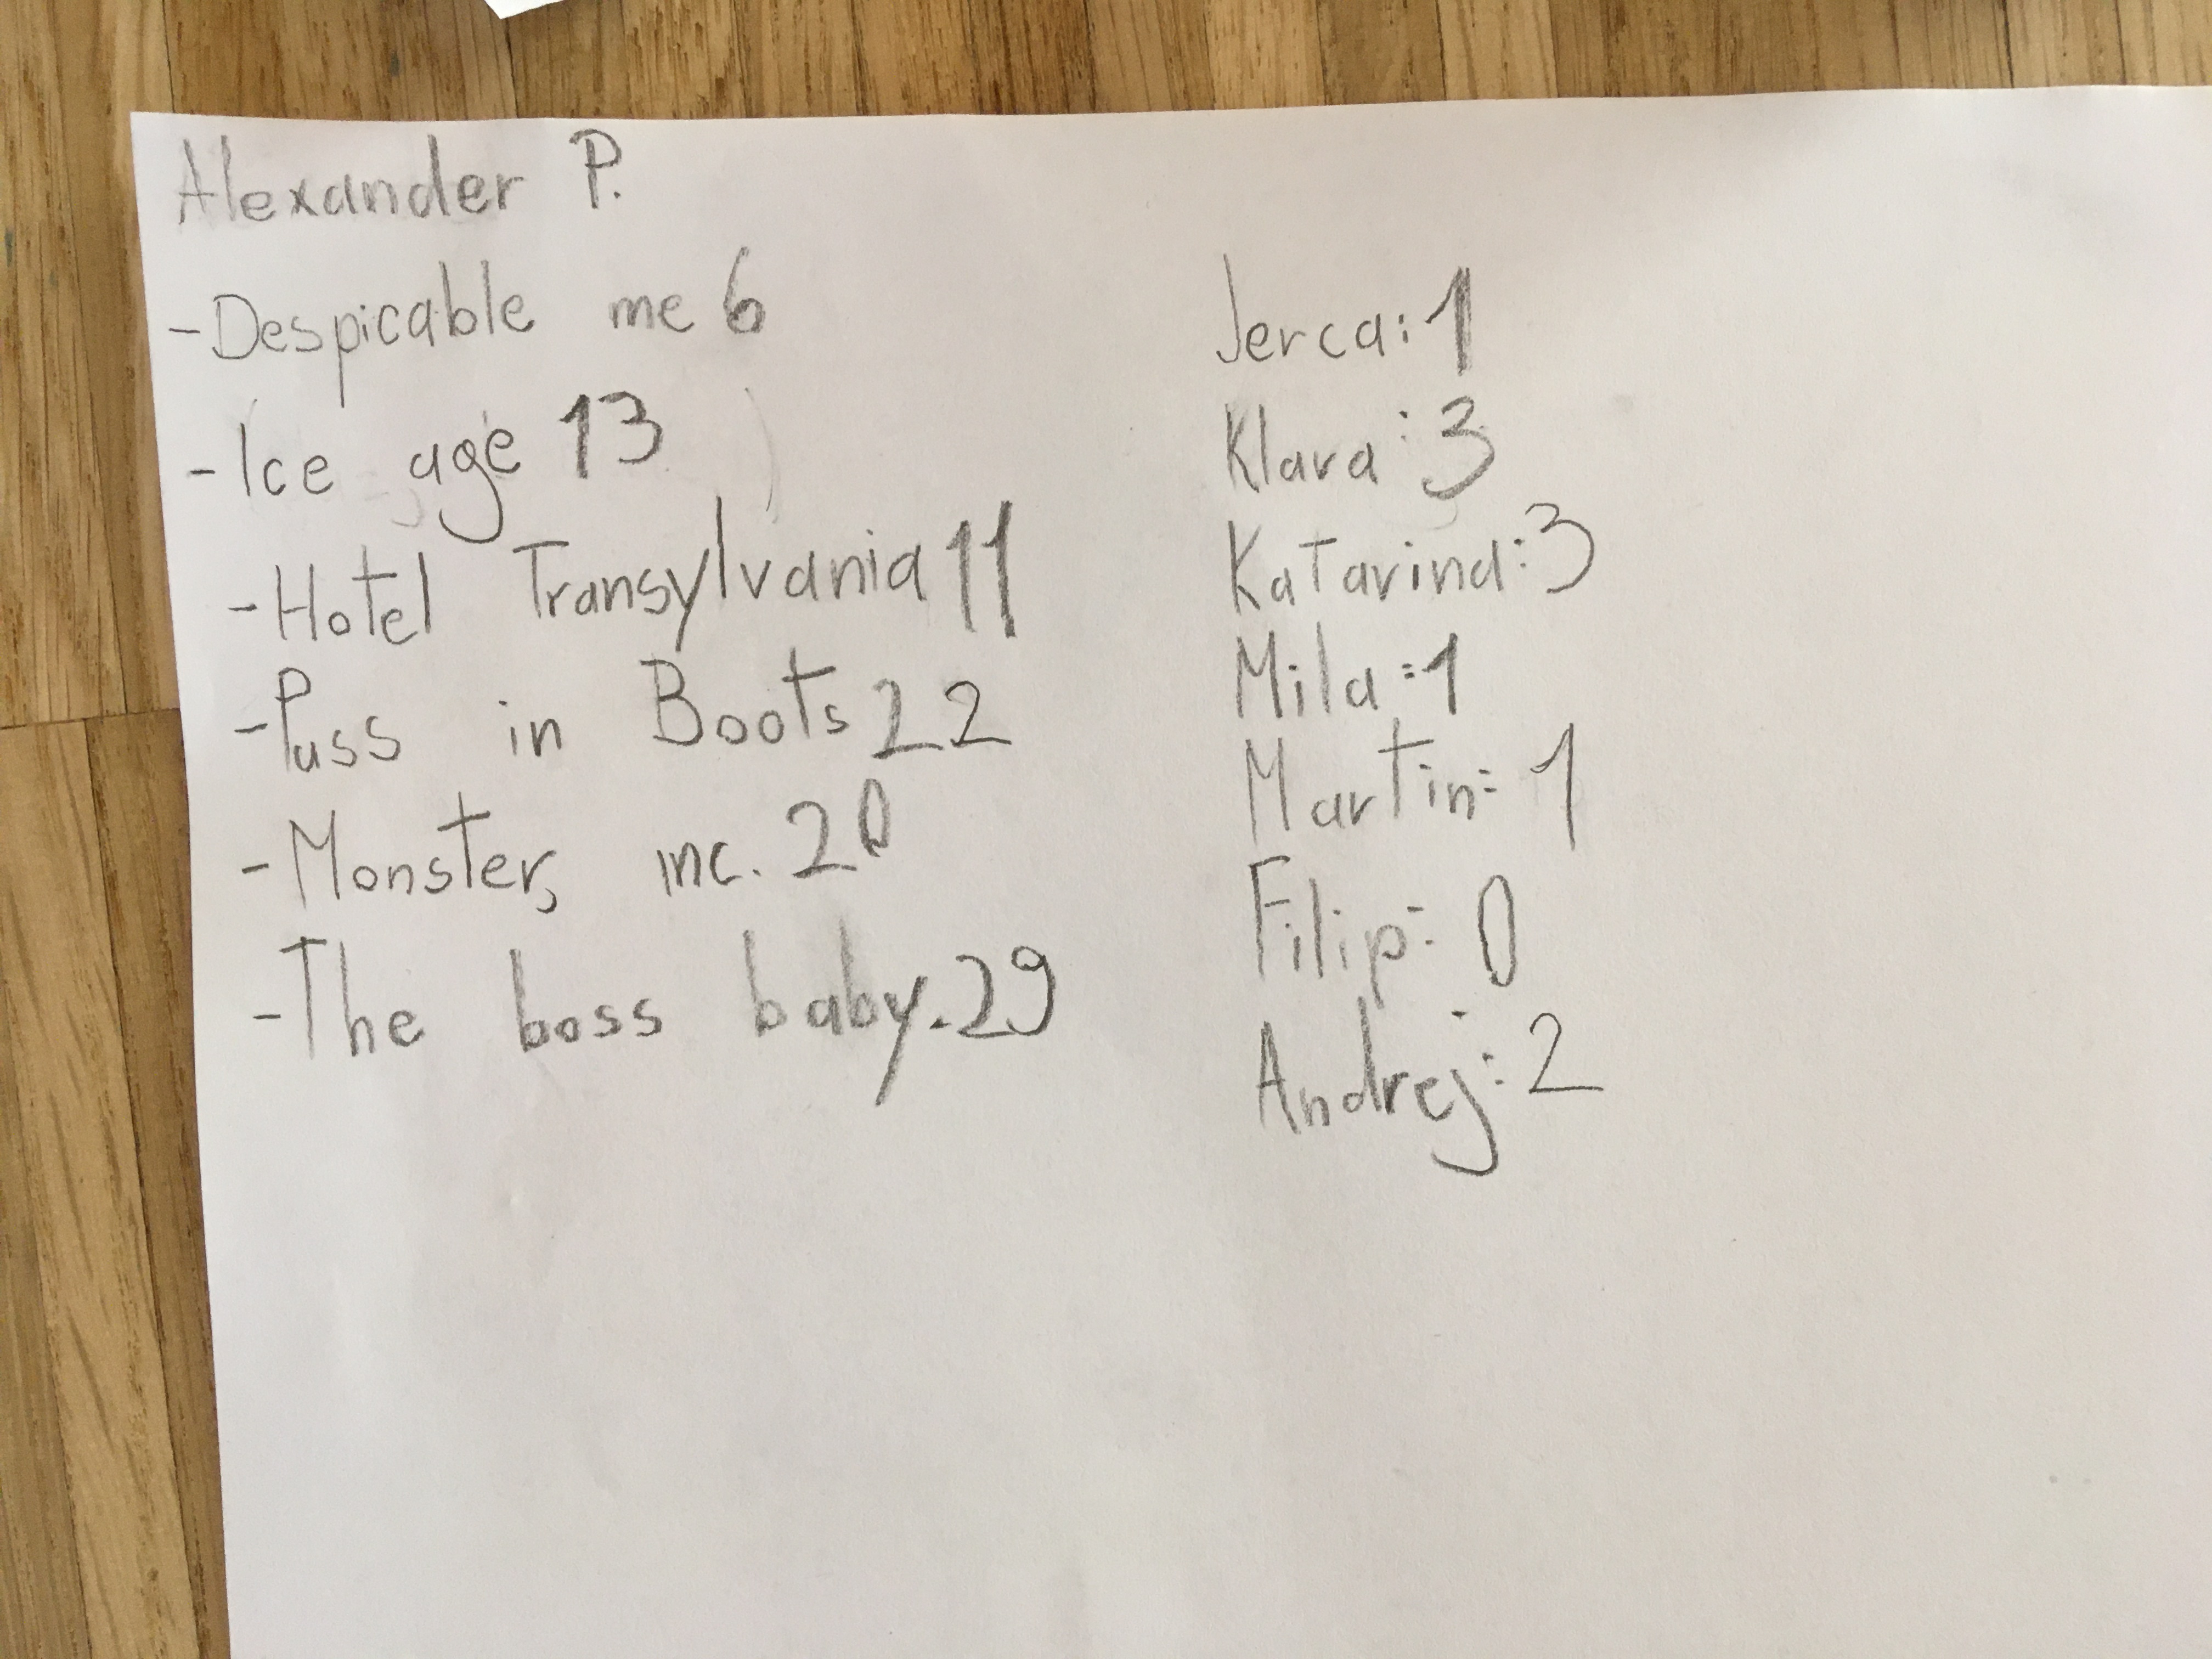 Alexander P.
-Despicable me 6
-Ice age 13
-Hotel Transylvania 11
-Puss in Boots 22
-Monster, inc. 20
-The boss baby. 29
Jerca: 1
Klara: 3
Katarina: 3
Mila: 1
Martin: 1
Filip: 0
Andrej: 2